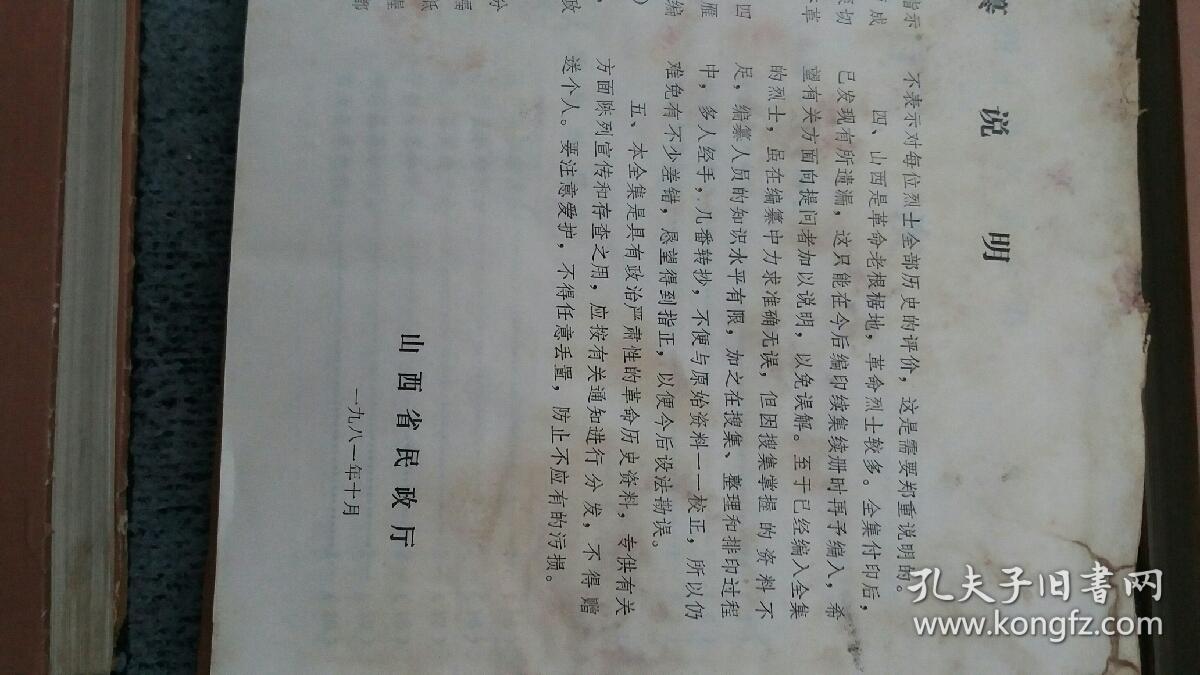 说明
不表示对每位烈士全部历史的评价，这是需要郑重说明的。
四、山西是革命老根据地，革命烈士较多。全集付印后，
已发现有所遗漏，这只能在今后编印续集续册时再予编入，希
望有关方面向提问者加以说明，以免误解。至于已经编入全集
的烈士，虽在编纂中力求准确无误，但因搜集掌握的资料不
足，编纂人员的知识水平有限，加之在搜集、整理和排印过程
中，多人经手，几番转抄，不便与原始资料一一校正，所以仍
难免有不少差错，恳望得到指正，以便今后设法勘误。
五、本全集是具有政治严肃性的革命历史资料，专供有关
方面陈列宣传和存查之用，应按有关通知进行分发，不得赠
送个人。要注意爱护，不得任意丢置，防止不应有的污损。
山西省民政厅
一九八一年十月
指示。
成
切
革
四
雁
编
政
分
部
孔夫子旧书网
www.kongfz.com